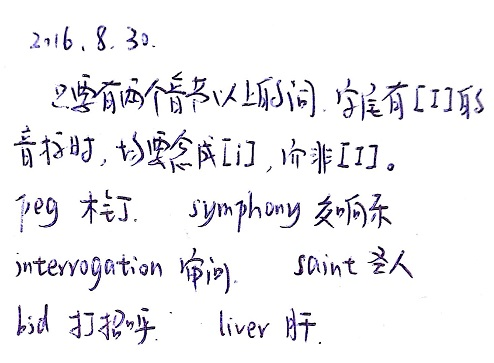 2016.8.30.
只要有两个音节以上的词.字尾有[I]的
音标时,均要念成[i],而非[I]。
peg 木钉. symphony 交响乐
interrogation 审问. saint 圣人
bid 打招呼. liver 肝.